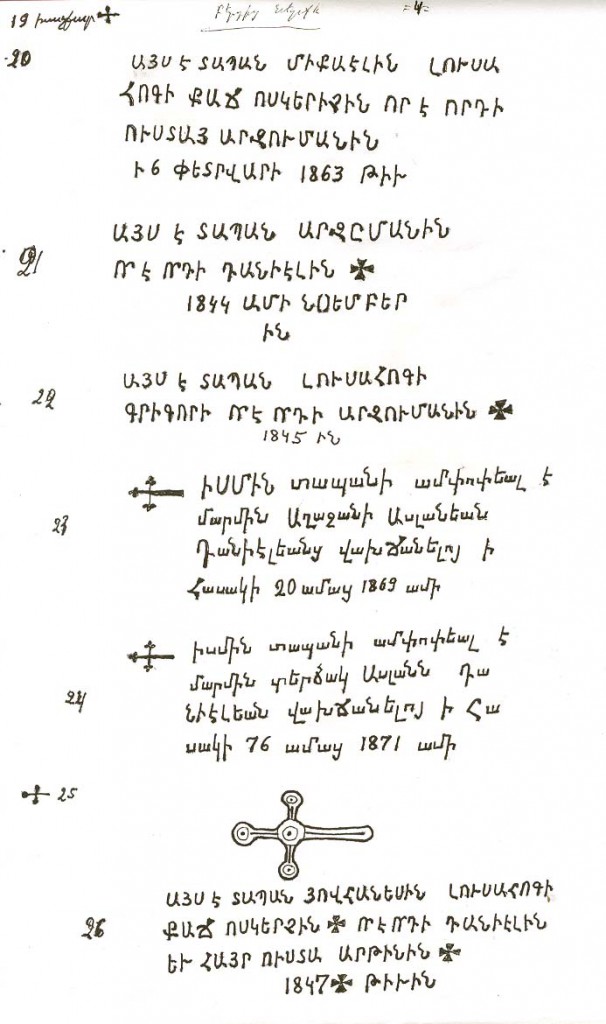 19 խաչքար
=4=
20 ԱՅՍ Է ՏԱՊԱՆ ՄԻՔԱԷԼԻՆ ԼՈՒՍԱ
ՀՈԳԻ ՔԱՃ ՈՍԿԵՐԻՉԻՆ ՈՐ Է ՈՐԴԻ
ՈՒՍՏԱՅ ԱՐԶՈՒՄԱՆԻՆ
Ի 6 ՓԵՏՐՎԱՐԻ 1863 ԹԻԻ
21 ԱՅՍ Է ՏԱՊԱՆ ԱՐԶԸՄԱՆԻՆ
Ո՟Ր Է Ո՟ՐԴԻ ԴԱՆԻԷԼԻՆ
1844 ԱՄԻ ՆՕԵՄԲԵՐ
ԻՆ
22 ԱՅՍ Է ՏԱՊԱՆ ԼՈՒՍԱՀՈԳԻ
ԳՐԻԳՈՐԻ ՈՐ Է ՈՐԴԻ ԱՐԶՈՒՄԱՆԻՆ
1845 ԻՆ
23 ԻՍՄԻՆ տապանի ամփոփեալ է
մարմին Աղաջանի Ասլանեան
Դանիէլեանց վախճանելոյ ի
Հասակի 20 ամաց 1869 ամի
24 իսմին տապանի ամփոփեալ է
մարմին դերձակ Ասլանն Դա
նիէլեան վախճանելոյ ի Հա
սակի 76 ամաց 1871 ամի
25
26 ԱՅՍ Է ՏԱՊԱՆ ՅՈՎՀԱՆԵՍԻՆ ԼՈՒՍԱՀՈԳԻ
ՔԱՃ ՈՍԿԵՐՉԻՆ ՈՐ Է ՈՐԴԻ ԴԱՆԻԷԼԻՆ
ԵՒ ՀԱՅՐ ՈՒՍՏԱ ԱՐԹԻՆԻՆ
1847 ԹԻՒԻՆ